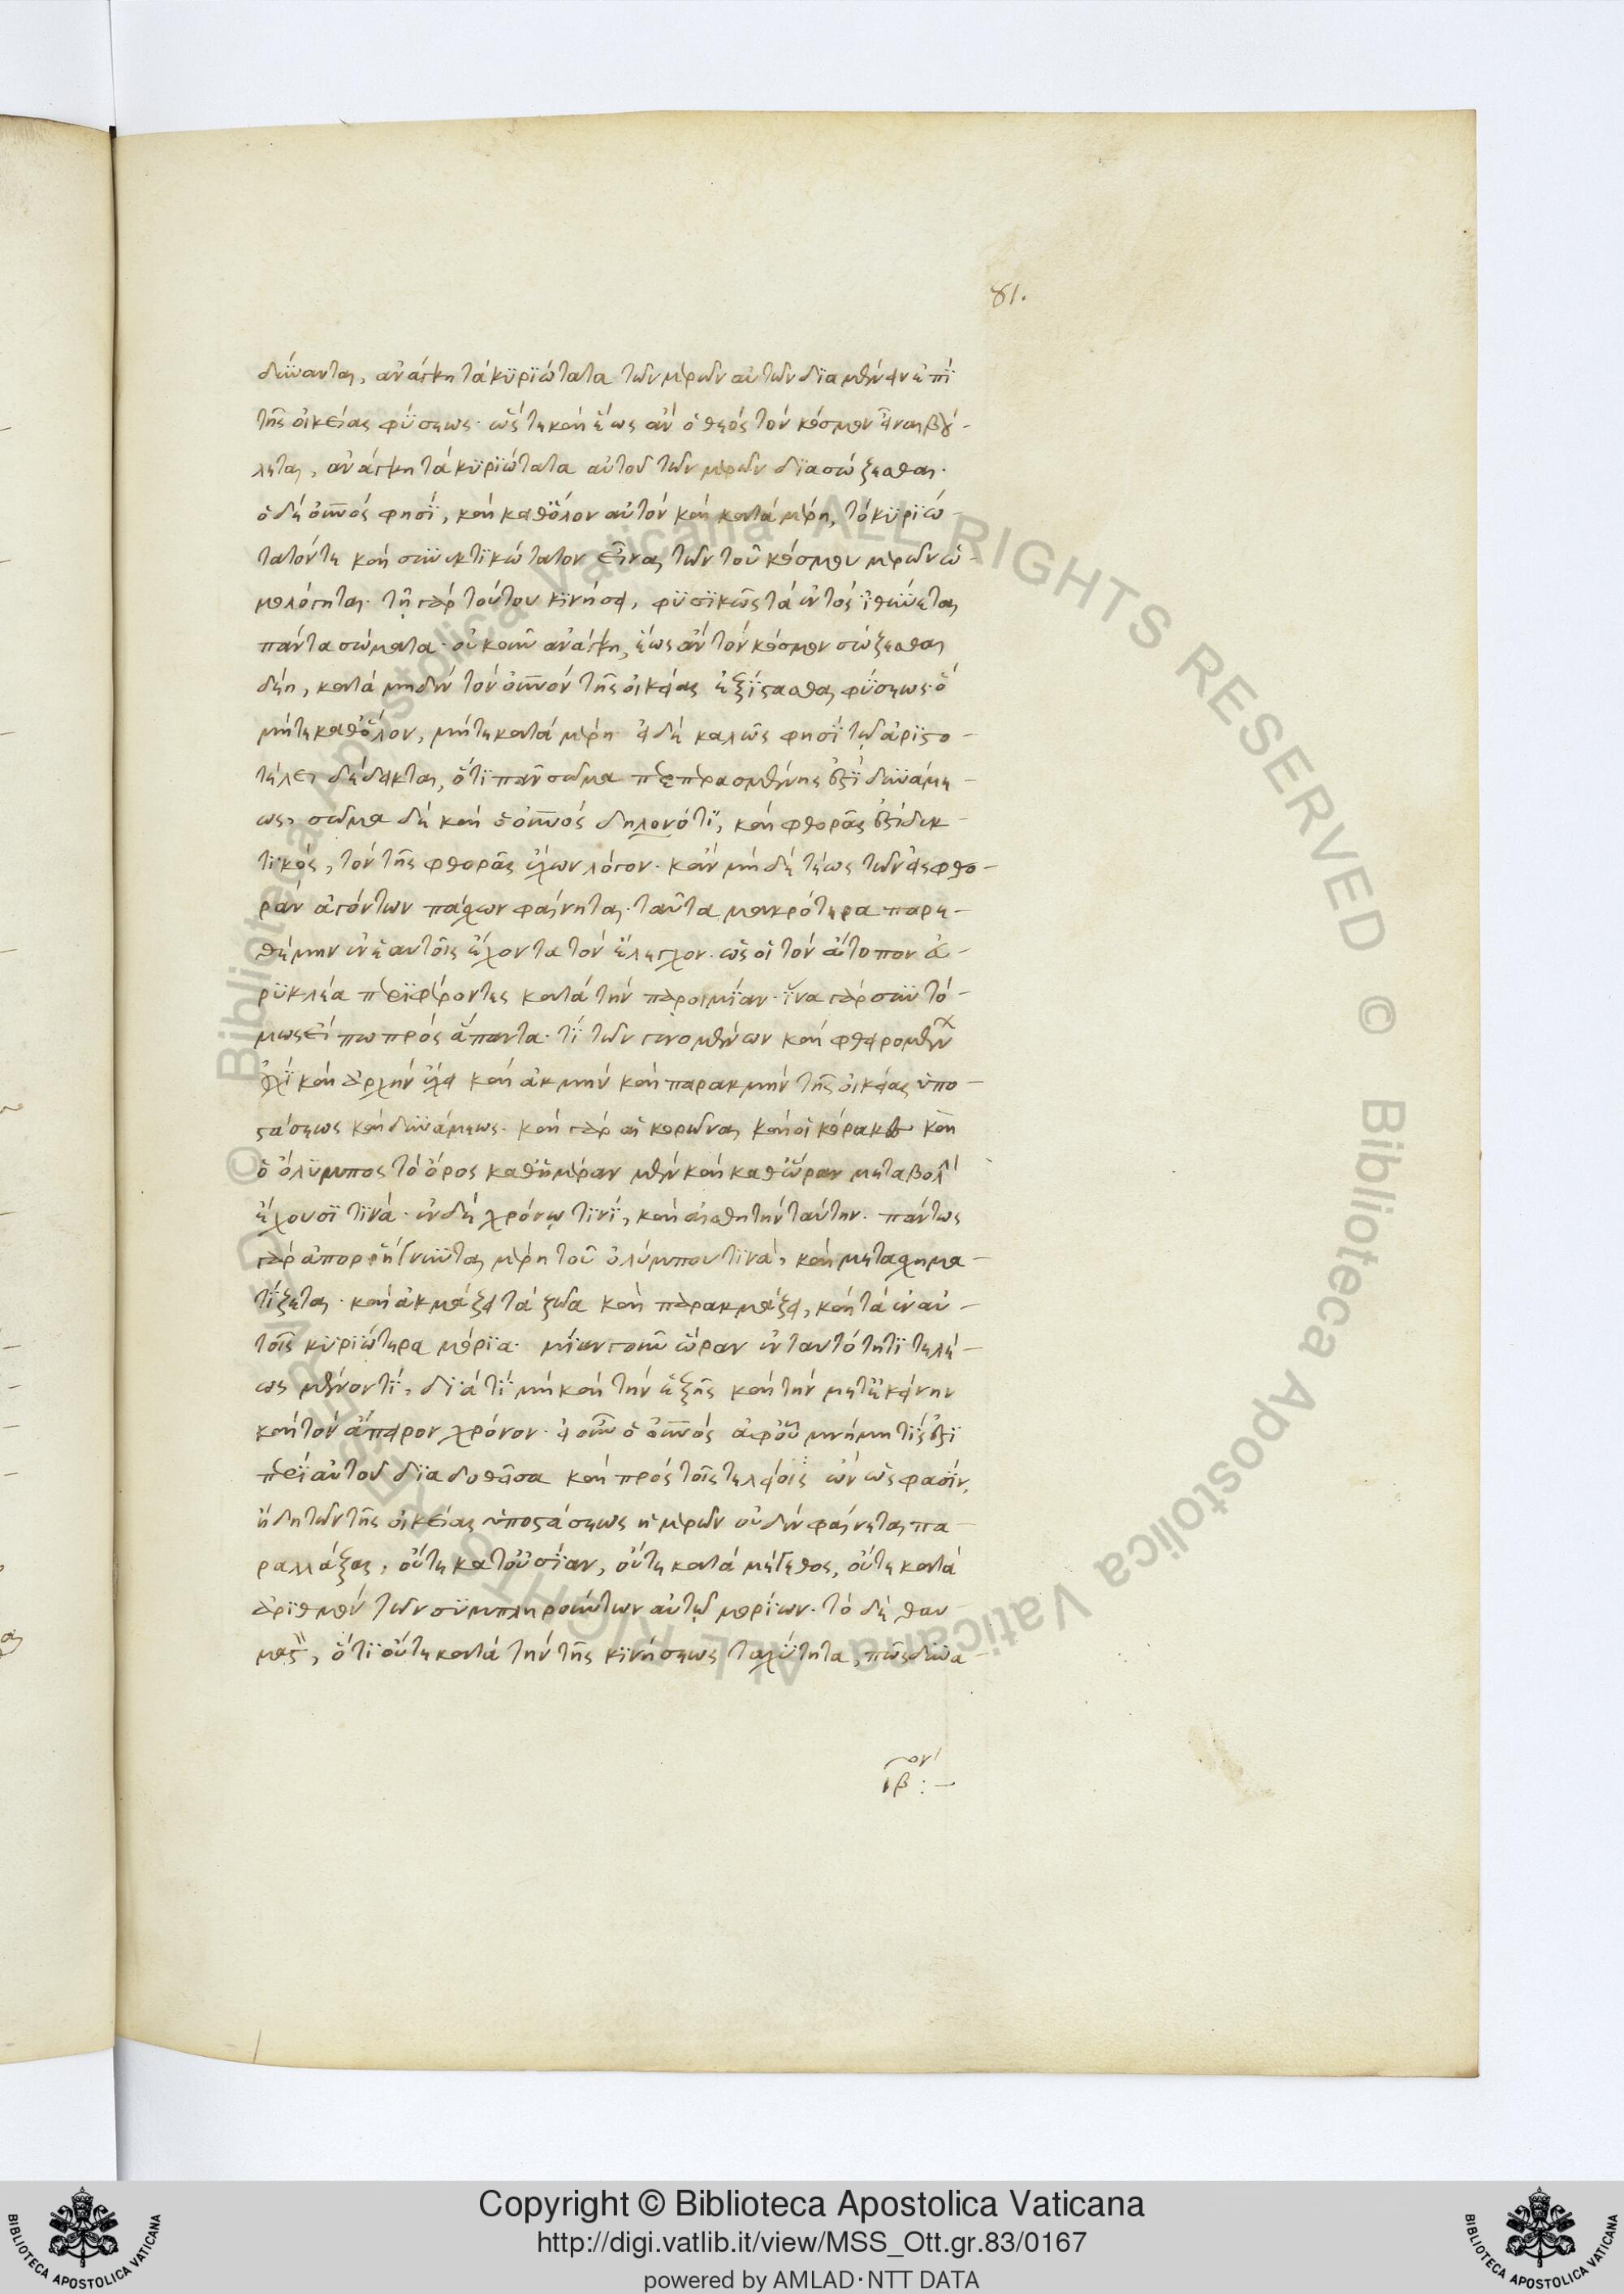 81.
δύνανται, ἀνάγκη τὰ κυριώτατα τῶν μερῶν αὐτῶν διαμένειν ἐπὶ
τῆς οἰκείας φύσεως· ὥστε καὶ ἕως ἂν ὁ θεὸς τὸν κόσμον εἶναι βού-
ληται, ἀνάγκη τὰ κυριώτατα αὐτοῦ τῶν μερῶν διασώζεσθαι·
ὁ δὲ οὐνός φησί, καὶ καθόλου αὐτὸν καὶ κατὰ μέρη, τὸ κυριώ-
τατόν τε καὶ συνεκτικώτατον εἶναι τῶν τοῦ κόσμου μερῶν ὡ-
μολόγηται· τῇ γὰρ τούτου κινήσει, φυσικῶς τὰ ἐντὸς ἰθύνεται
πάντα σώματα· οὐκοῦν ἀνάγκη, ἕως ἂν τὸν κόσμον σώζεσθαι
δέῃ, κατὰ μηδὲν τὸν οὐνὸν τῆς οἰκείας ἐξίστασθαι φύσεως· ὃ
μήτε καθόλου, μήτε κατὰ μέρη· εἰ δὲ καλῶς φησὶ τῷ ἀριστο-
τέλει δέδεικται, ὅτι πᾶν σῶμα πεπερασμένης ἐστὶ δυνάμε-
ως, σῶμα δὲ καὶ ὁ οὐνὸς δηλονότι, καὶ φθορᾶς ἐστὶ δεκ-
τικός, τὸν τῆς φθορᾶς ἔχων λόγον· κἂν μὴ δὲ τέως τῶν εἰς φθο-
ρὰν ἀγόντων πάσχων φαίνηται· ταῦτα μακρότερα παρε-
θέμην ἐν ἑαυτοῖς ἔχοντα τὸν ἔλεγχον· ὡς οἱ τὸν ἄτοπον ἀ-
ρυκλέα περιφέροντες κατὰ τὴν παροιμίαν· ἵνα γὰρ συντό-
μως εἴπω πρὸς ἅπαντα· τί τῶν γινομένων καὶ φθειρομένων
οὐχὶ καὶ ἀρχὴν ἔχει καὶ ἀκμὴν καὶ παρακμὴν τῆς οἰκείας ὑπο-
στάσεως καὶ δυνάμεως· καὶ γὰρ αἱ κορῶναι καὶ οἱ κόρακες καὶ
ὁ ὄλυμπος τὸ ὄρος καθ' ἡμέραν μὲν καὶ καθ' ὥραν μεταβολ
ἔχουσί τινα· ἐν δὲ χρόνῳ τινί, καὶ αἰσθητὴν ταύτην· πάντως
γὰρ ἀπορρήγνυται μέρη τοῦ ὀλύμπου τινά, καὶ μετασχημα-
τίζεται· καὶ ἀκμάζει τὰ ζῶα καὶ παρακμάζει, καὶ τὰ ἐν αὐ-
τοῖς κυριώτερα μόρια· μίαν γοῦν ὥραν ἐν ταυτότητι τελέ-
ως μένοντί, διατί μὴ καὶ τὴν ἑξῆς καὶ τὴν μετ' ἐκείνην
καὶ τὸν ἄπειρον χρόνον· εἰ οὖν ὁ οὐνὸς ἀφ' οὗ μνήμη τίς ἐστι
περὶ αὐτοῦ διαδοθεῖσα καὶ πρὸς τοῖς τελείοις ὢν ὥς φασίν,
ἤδη τῶν τῆς οἰκείας ὑποστάσεως ἡμερῶν οὐδὲν φαίνεται πα-
ραλλάξας, οὔτε κατ' οὐσίαν, οὔτε κατὰ μέγεθος, οὔτε κατὰ
ἀριθμὸν τῶν συμπληρούντων αὐτῷ μορίων· τὸ δὲ θαυ-
μαστ, ὅτι οὔτε κατὰ τὴν τῆς κινήσεως ταχύτητα, πῶς δύνα-
ιβ:—
Copyright © Biblioteca Apostolica Vaticana
http://digi.vatlib.it/view/MSS_Ott.gr.83/0167
powered by AMLAD·NTT DATA